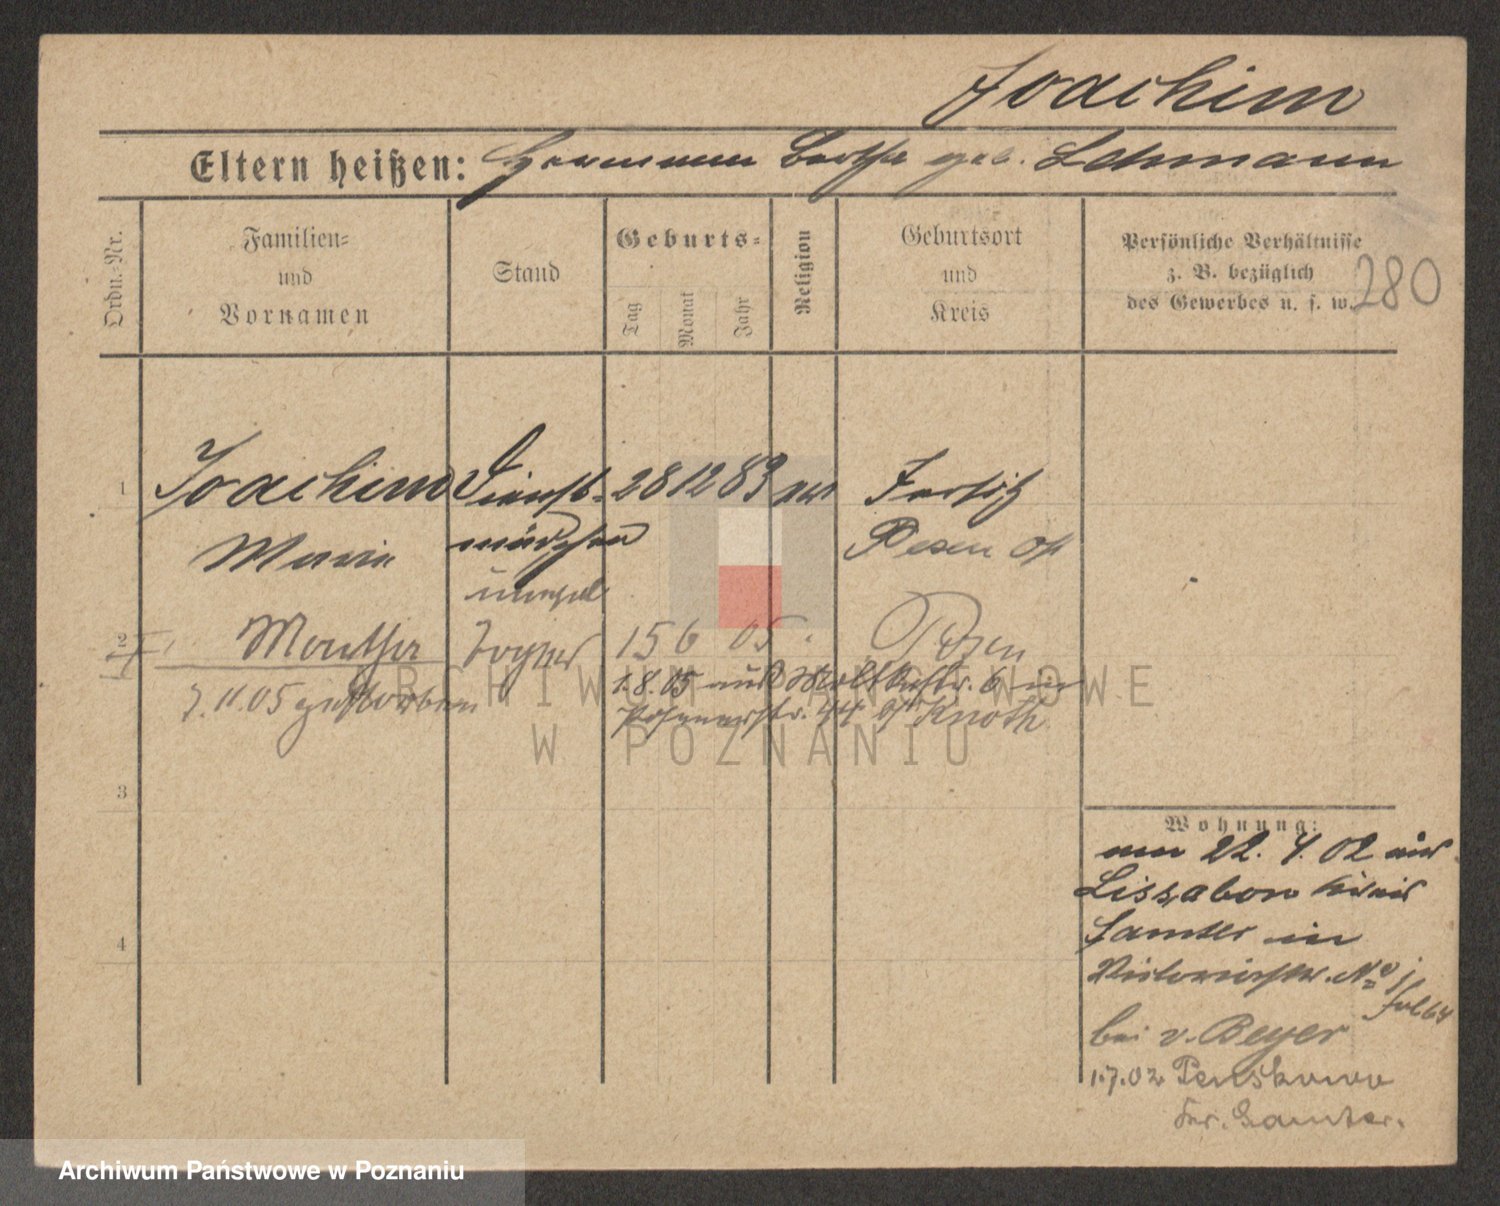 Joachim
Eltern heißen: Hermann Bertha geb. Lehmann
Ordn.-Nr.
Familien-
und
Vornamen
Stand
Geburts-
Tag
Monat
Jahr
Religion
Geburtsort
und
Kreis
Persönliche Verhältnisse
z. B. bezüglich
des Gewerbes u. s. w.
280
1
Joachim Dienst- 28 12 83 ev Jersitz
Marie mädchen Posen Ost
2
Martha Tochter 15 6 05. Posen
7.11.05 gestorben
1.8.05 aus Moltkestr. 6 in
Posenerstr. 44 bei Knoth
3
4
Wohnung:
am 22. 4. 02 aus
Lissabon Kreis
Samter in
Victoriastr. No
bei v. Beyer
1.7.02 Penskowo
Kr. Samter.
ARCHIWUM PAŃSTWOWE
W POZNANIU
Archiwum Państwowe w Poznaniu